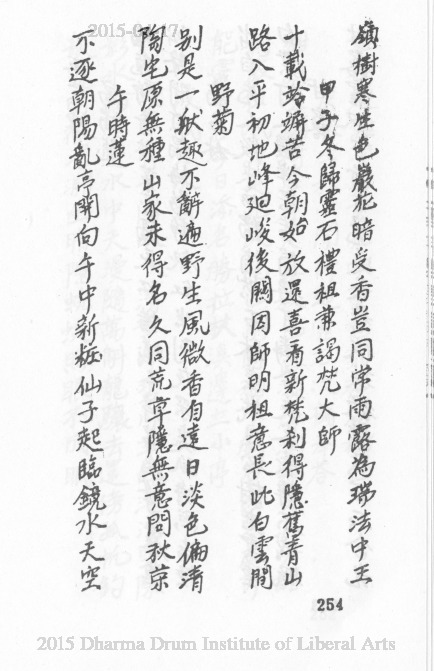 2015-04-17
嶺樹寒生色巖花暗受香豈同常雨露為瑞法中王
甲子冬歸靈石禮祖兼謁梵大師
十載跉竮苦今朝始放還喜看新梵刹得隱舊青山
路入平初地峰迴峻後關因師明祖意長此白雲間
野菊
別是一種趣不辭遍野生風微香自遠日淡色偏清
陶宅原無種山家未得名久同荒草隱無意問秋榮
午時蓮
不逐朝陽亂亭開向午中新粧仙子起臨鏡水天空
254
2015 Dharma Drum Institute of Liberal Arts